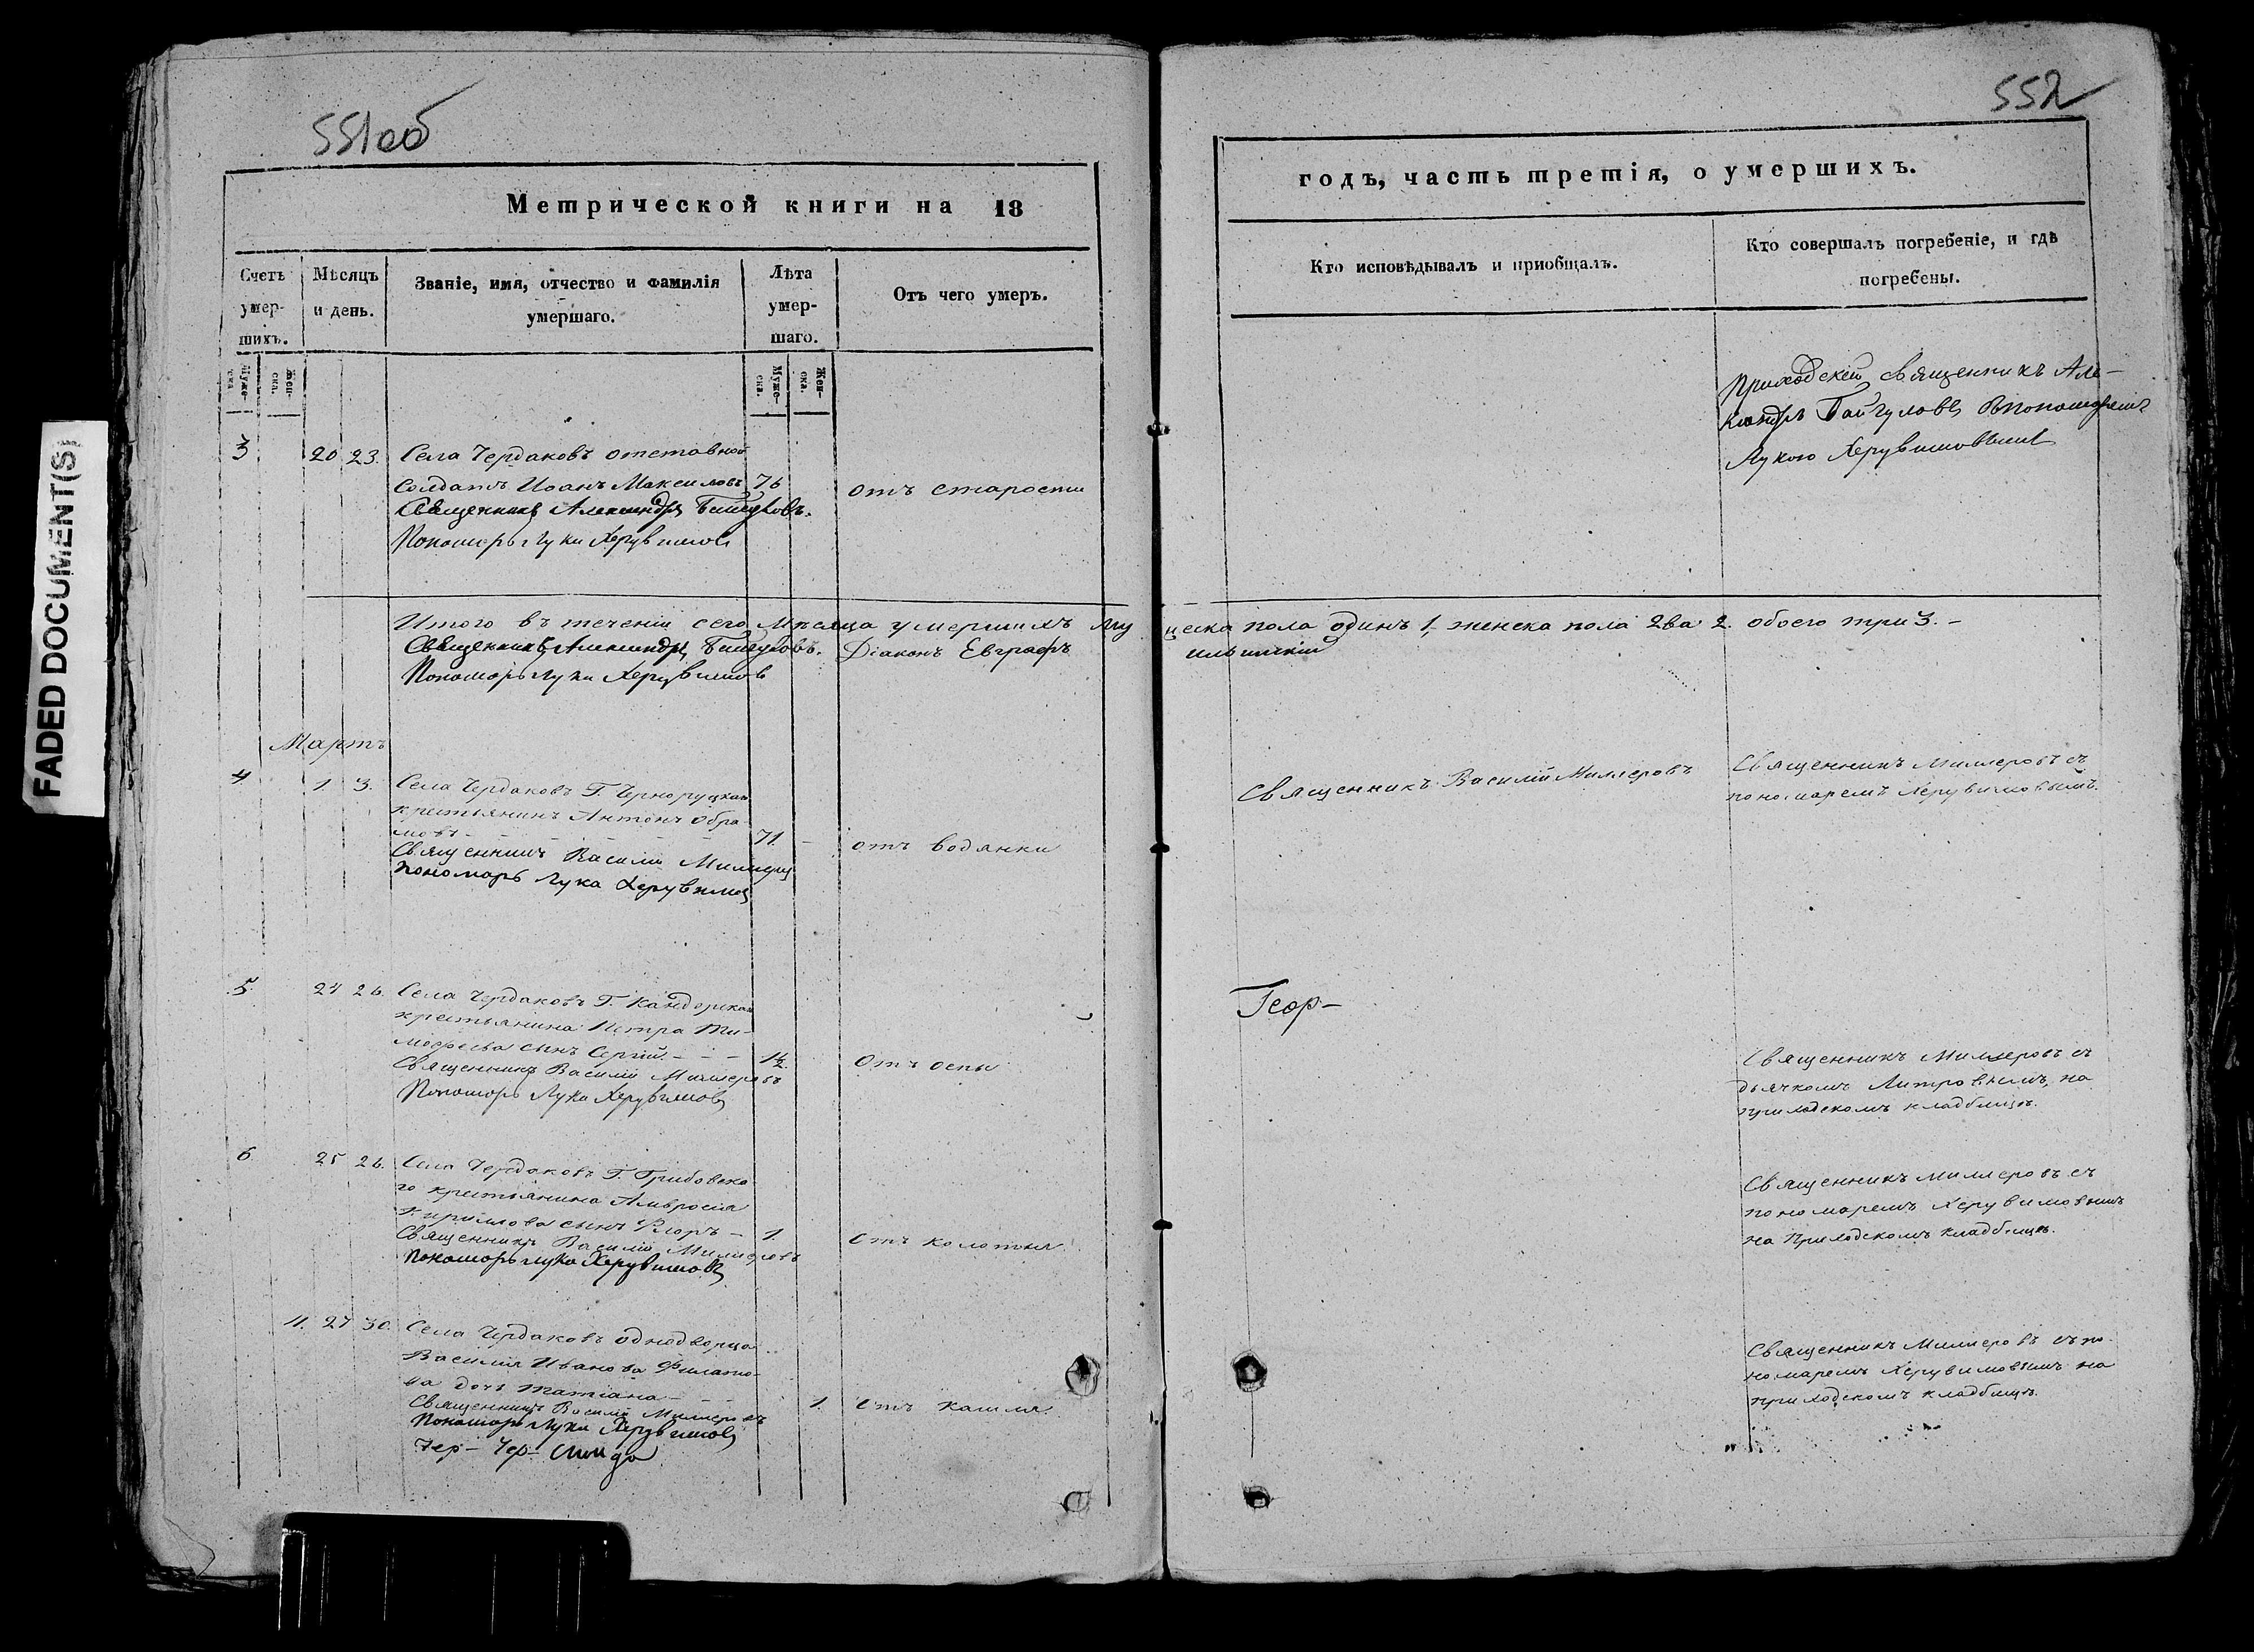 FADED DOCUMENT(S)
551 об
Метрической книги на 18
Счетъ умер-шихъ.
Муже-ска.
Жен-ска.
Мѣсяцъ и день.
Званіе, имя, отчество и фамилія умершаго.
Лѣта умер-шаго.
Муже-ска.
Жен-ска.
Отъ чего умеръ.
3 20 23. Села Чердаковъ отставной
солдатъ Иоанъ Максимовъ 76 отъ старости
Священникъ Александръ
Пономарь Лука Херувимовъ
Итого въ теченіи сего мѣсяца умершихъ му
Священникъ Александръ Діаконъ Евграфъ
Пономарь Лука Херувимовъ
Мартъ
4. 1 3. Села Чердаковъ Г.
крестьянинъ Антонъ Обра-
мовъ - 71. отъ водянки
Священникъ Василій Миллеровъ
Пономарь Лука Херувимовъ
5. 24 26. Села Чердаковъ Г.
крестьянина Петра Ти-
мофеева сынъ Сергій - - - 1½ Отъ оспы
Священникъ Василій Миллеровъ
Пономарь Лука Херувимовъ
6 25 26. Села Чердаковъ Г. Грибовска
го крестьянина Амвросія
Кирилова сынъ - 1. Отъ
Священникъ Василій Миллеровъ
Пономарь Лука Херувимовъ
11. 27 30. Села Чердаковъ однодворца
Василія Иванова Филато-
ва дочь Татіана - -
Священникъ Василій Миллеровъ 1. Отъ кашля.
Пономарь Лука Херувимовъ
552
годъ, часть третія, о умершихъ.
Кто исповѣдывалъ и пріобщалъ.
Кто совершалъ погребеніе, и гдѣ погребены.
Приходскій священникъ Але-
ксандръ съ пономаремъ
Лукою Херувимовымъ
ческа пола одинъ 1, женска пола два 2. обоего три 3. -
Священникъ Василій Миллеровъ
Священникъ Миллеровъ съ
пономаремъ Херувимовымъ.
Геор-
Священникъ Миллеровъ съ
дьячкомъ на
приходскомъ кладбищѣ.
Священникъ Миллеровъ съ
пономаремъ Херувимовымъ
на приходскомъ кладбищѣ.
Священникъ Миллеровъ съ по-
номаремъ Херувимовымъ на
приходскомъ кладбищѣ.